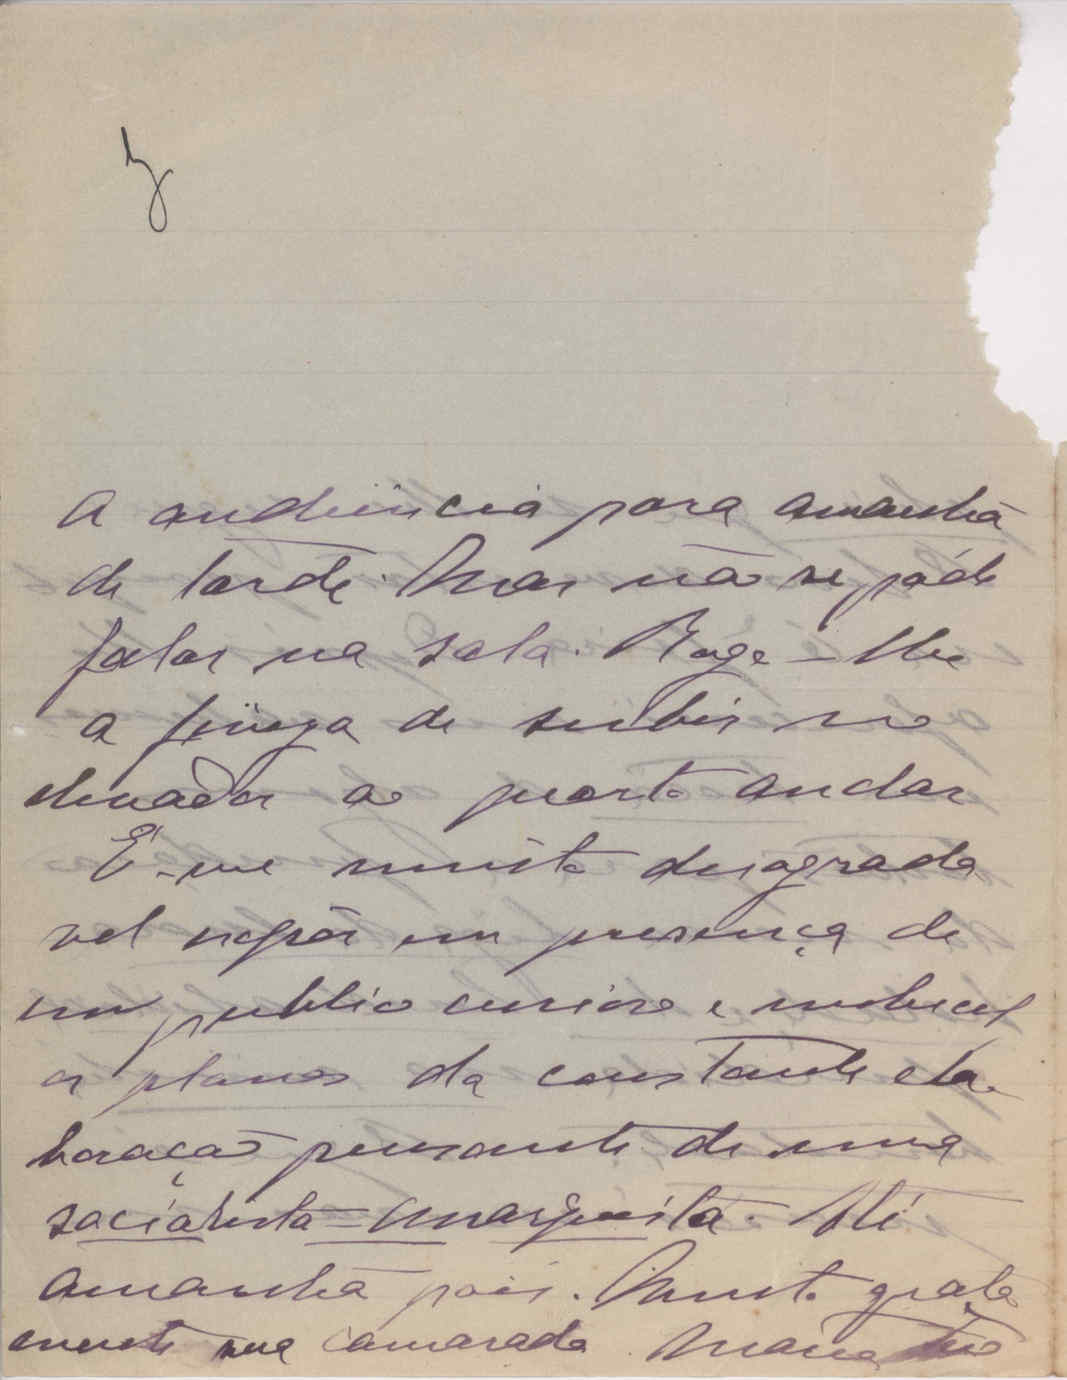 a audiencia para amanhã
de tarde. Mas não se póde
falar na sala. Rogo-lhe
a fineza de subir no
elevador ao quarto andar
É-me muito desagrada
vel expôr em presença de
um publico curioso e imbecil
os planos da constante ela-
boração pensante de uma
socialista-anarquista. Até
amanhã pois. Muito grata
mente sua camarada Maria